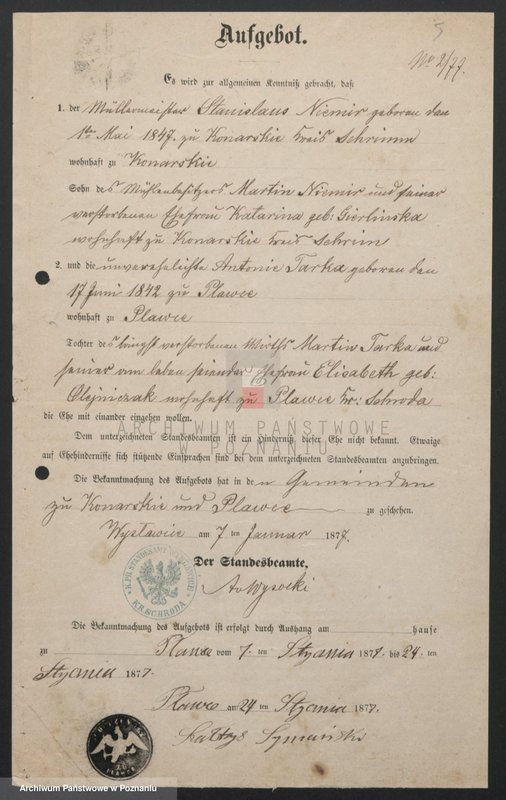 5
Aufgebot.
No 2/77.
Es wird zur allgemeinen Kenntniß gebracht, daß
1. der Müllermeister Stanislaus Niemir geboren den
1ten Mai 1847. zu Konarskie Kreis Schrimm
wohnhaft zu Konarskie
Sohn des Mühlenbesitzers Martin Niemir und seiner
verstorbenen Ehefrau Katarina geb:
wohnhaft zu Konarskie Kreis Schrim
2. und die unverehelichte Antonie Tarka geboren den
17 Juni 1842 zu Plawce
wohnhaft zu Plawce
Tochter des längst verstorbenen Wirths Martin Tarka und
seiner am leben seiender Ehefrau Elisabeth geb:
Olejniczak wohnhaft zu Plawce Kr: Schroda
die Ehe mit einander eingehen wollen.
Dem unterzeichneten Standesbeamten ist ein Hinderniß dieser Ehe nicht bekannt. Etwaige
auf Ehehindernisse sich stützende Einsprachen sind bei dem unterzeichneten Standesbeamten anzubringen.
ARCHIWUM PAŃSTWOWE
W POZNANIU
Die Bekanntmachung des Aufgebots hat in den Gemeinden
zu Konarskie und Plawce zu geschehen.
am 7 ten Januar 1877.
Der Standesbeamte.
K. PR. STANDESAMT
KR. SCHRODA
AvWysocki
Die Bekanntmachung des Aufgebots ist erfolgt durch Aushang am hause
zu Plawce vom 7. ten Stycznia 1877 bis 24. ten
Stycznia 1877.
Plawce am 24 ten Stycznia 1877.
PLAWCE
Archiwum Państwowe w Poznaniu